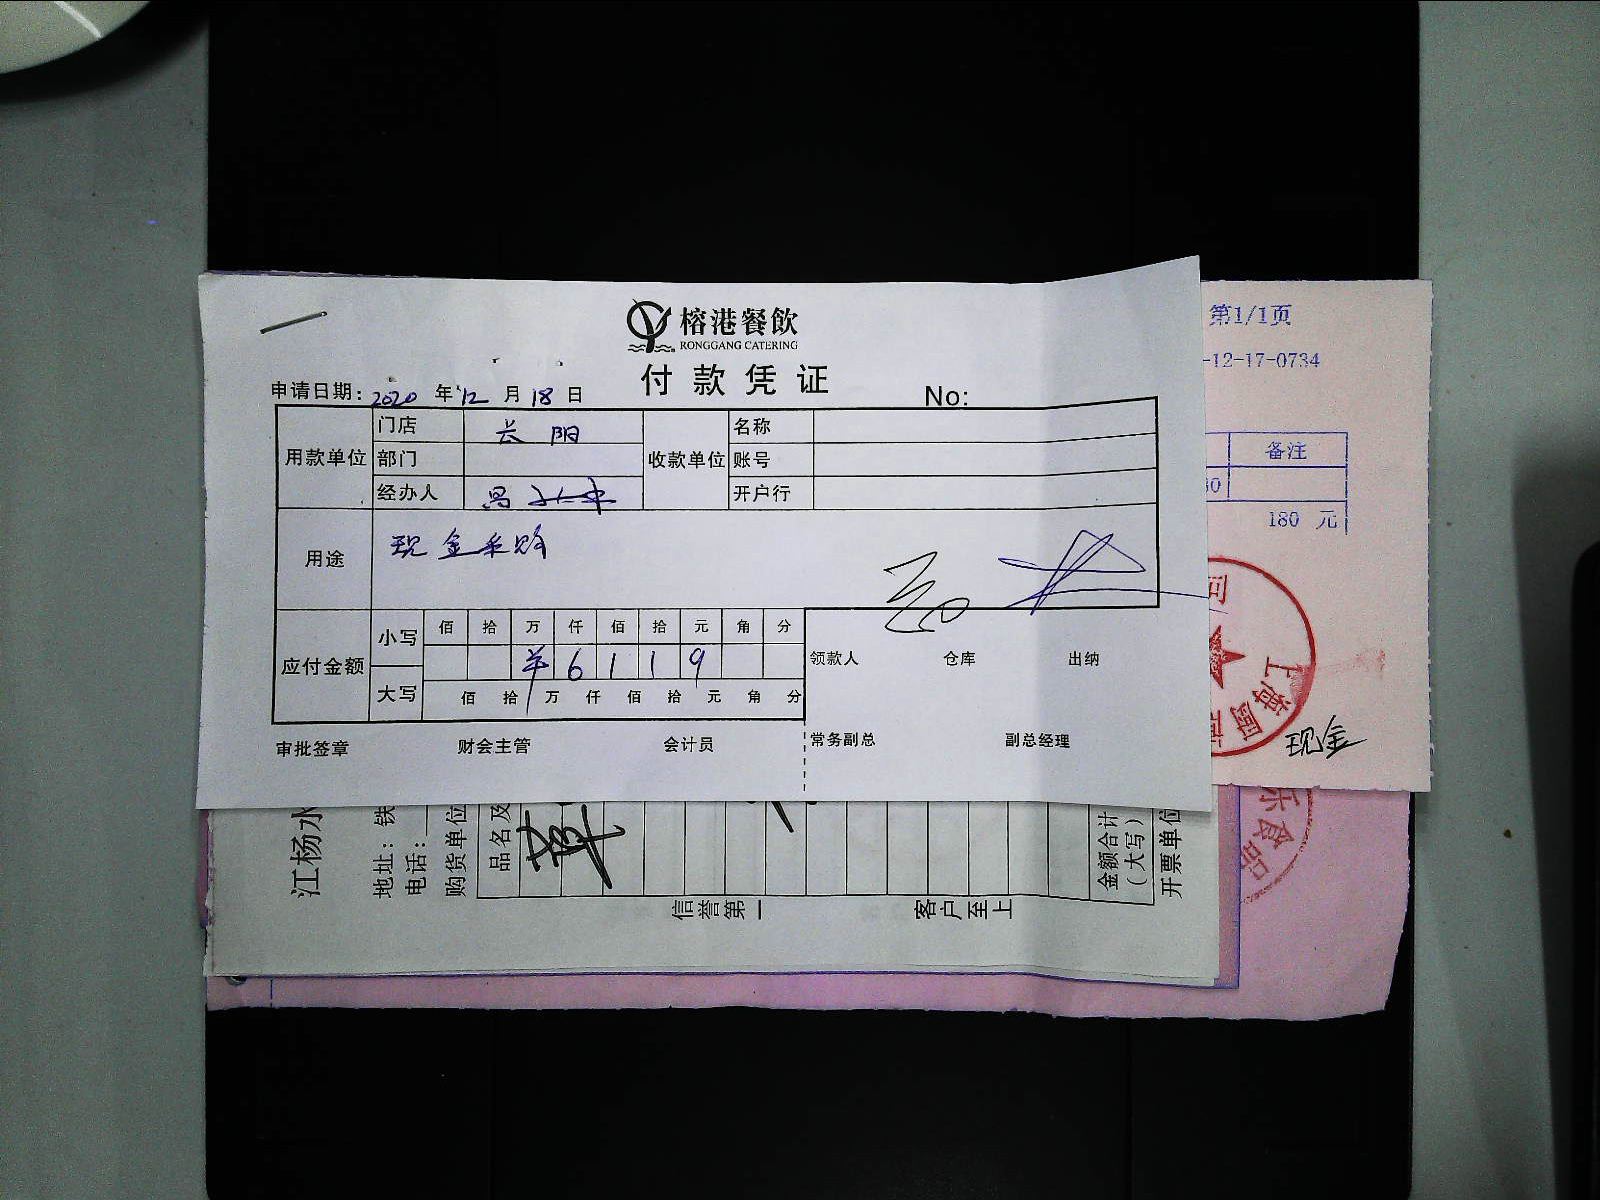 榕港餐飲
RONGGANG CATERING
付款凭证
申请日期: 2020 年 12 月 18 日 No:
用款单位 门店 长阳 收款单位 名称
部门 账号
经办人 开户行
用途 现金采购
应付金额 小写 佰 拾 万 仟 佰 拾 元 角 分
¥ 6 1 1 9
大写 佰 拾 万 仟 佰 拾 元 角 分
领款人 仓库 出纳
审批签章 财会主管 会计员 常务副总 副总经理
第1/1页
-12-17-0734
备注
180 元
上海厨
现金
江杨水
地址: 铁
电话:
购货单位
品名及
金额合计
(大写)
开票单位
信誉第一
客户至上
乐食品